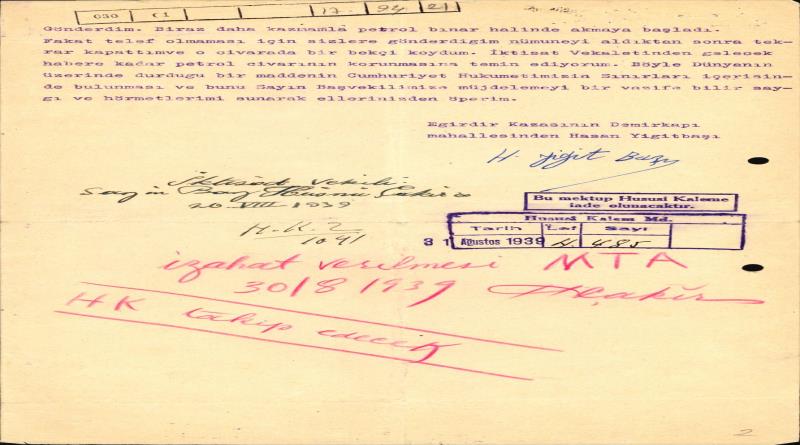 030 01 17 94 21
Gönderdim. Biraz daha kazmamla petrol bınar halinde akmaya başladı.
Fakat telef olmaması için sizlere gönderdigim nümuneyi aldıktan sonra tek-
rar kapattımve o civarada bir bekçi koydum. İktisat Vekaletinden gelecek
habere kadar petrol civarının korunmasına temin ediyorum. Böyle Dünyanın
üzerinde durdugu bir maddenin Cumhuriyet Hukumetimizin Sınırları içerisin-
de bulunması ve bunu Sayın Başvekilimize müjdelemeyi bir vazife bilir say-
gı ve hörmetlerimi sunarak ellerinizden öperim.
Egirdir Kazasının Demirkapı
mahallesinden Hasan Yigitbaşı
H. Yiğit Başı
İktisad Vekili
Sayın Bay Hüsnü Çakır'a
26 VIII 1939
H.K.2
1091
Bu mektup Hususi Kaleme
iade olunacaktır.
Hususi Kalem Md.
Tarih Lef Sayı
31 Ağustos 1939 H 485
izahat verilmesi MTA
30/8/1939 HÇakır
HK takip edecek
2